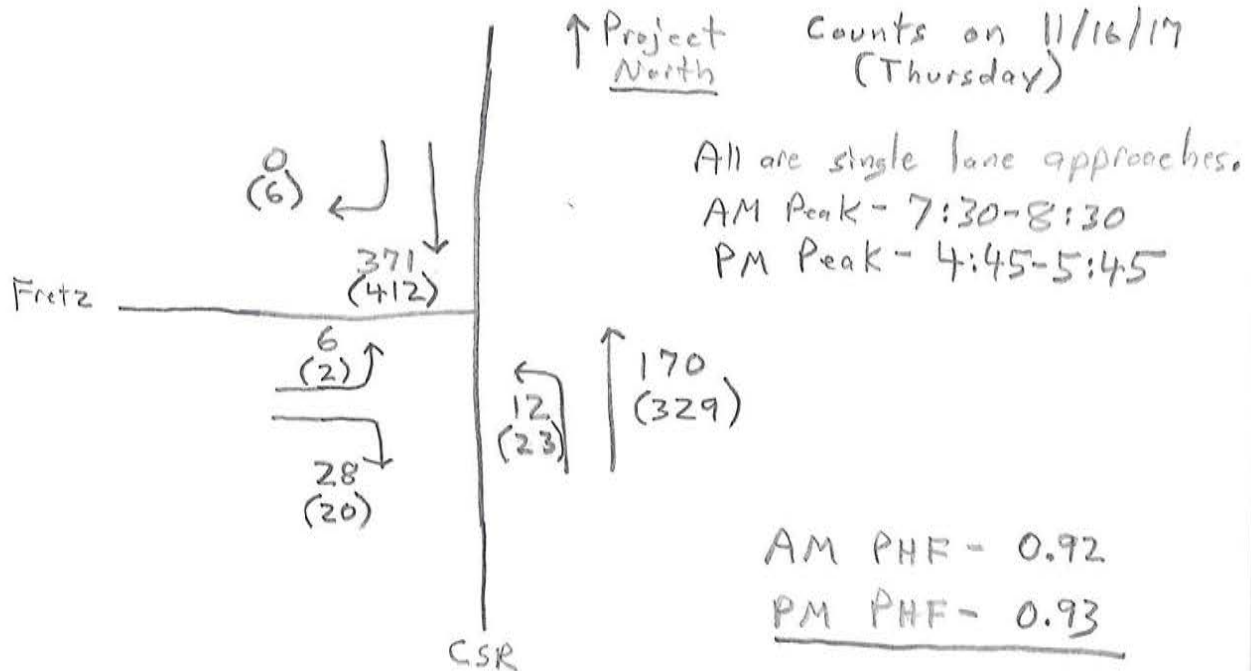 ↑ Project
North
Counts on 11/16/17
(Thursday)
All are single lane approaches.
AM Peak - 7:30-8:30
PM Peak - 4:45-5:45
0
(6)
371
(412)
Fretz
6
(2)
12
(23)
170
(329)
28
(20)
AM PHF - 0.92
PM PHF - 0.93
CSR